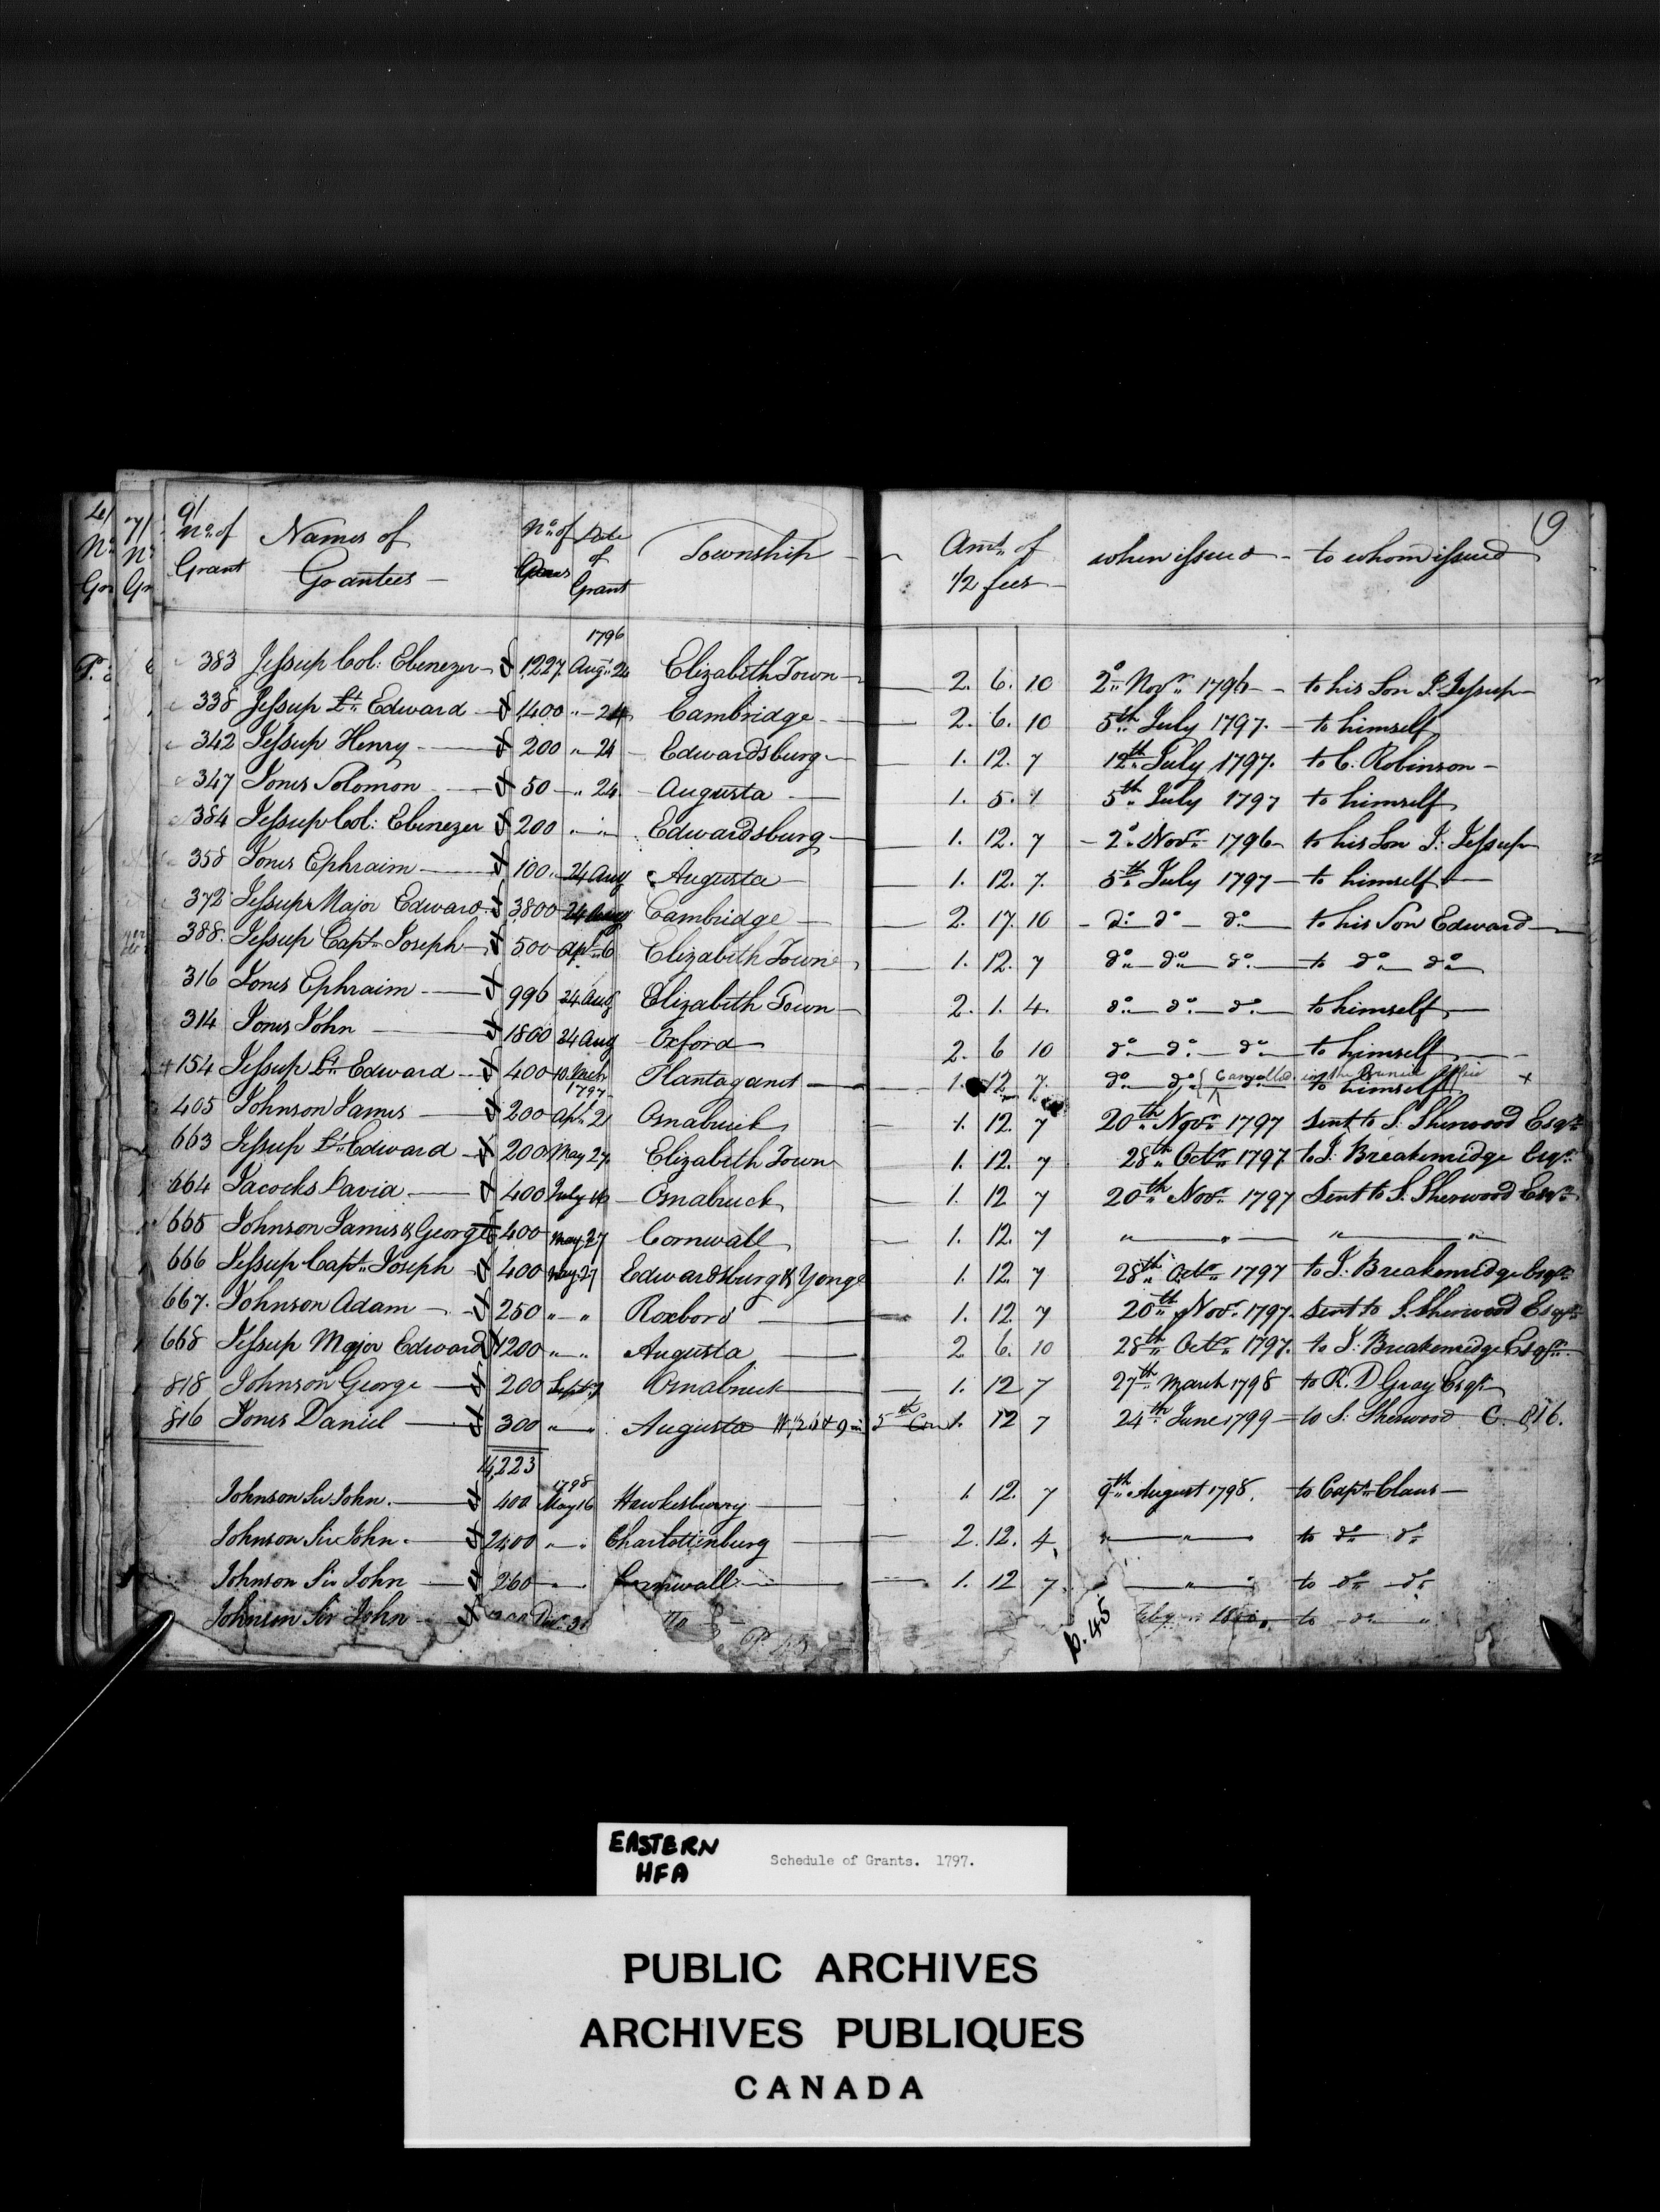 9/ 9
No. of Grant Names of Grantees No. of Acres Date of Grant Township Amt. of 1/2 fees when issued to whom issued
1796
383 Jessup Col: Ebenezer 1227 Augt. 24 Elizabeth Town 2. 6. 10 2d Novr. 1796 to his Son J. Jessup
338 Jessup Lt. Edward 1400 " 24 Cambridge 2. 6. 10 5th July 1797. to himself
342 Jessup Henry 200 " 24 Edwardsburg 1. 12. 7 12th July 1797. to C. Robinson
347 Jones Solomon 50 " 24 Augusta 1. 5. 1 5th July 1797 to himself
384 Jessup Col: Ebenezer 200 " " Edwardsburg 1. 12. 7 2d Novr. 1796 to his Son J. Jessup
358 Jones Ephraim 100 24 Aug Augusta 1. 12. 7. 5th July 1797 to himself
372 Jessup Major Edward 3800 24 Aug Cambridge 2. 17. 10 do do do to his Son Edward
388. Jessup Capt. Joseph 500 Apl. 6 Elizabeth Town 1. 12. 7 do do do to do do
316 Jones Ephraim 996 24 Aug Elizabeth Town 2. 1. 4. do do do to himself
314 Jones John 1800 24 Aug Oxford 2. 6 10 do do do to himself
+154 Jessup Lt. Edward 400 10 Plantaganet 1. 12 7. do do do Cancelled in the Office to himself +
1797
405 Johnson James 200 Apl. 21 Osnabruck 1. 12. 7 20th Novr. 1797 Sent to S. Sherwood Esqr.
663 Jessup Lt. Edward 200 May 27. Elizabeth Town 1. 12. 7 28th Octr. 1797 to J. Breakenridge Esqr.
664 Jacocks David 400 July Osnabruck 1. 12 7 20th Novr. 1797 Sent to S. Sherwood Esqr.
665 Johnson James & George 400 May 27 Cornwall 1. 12. 7 " " " "
666 Jessup Capt. Joseph 400 May 27 Edwardsburg & Yonge 1. 12 7 28th Octr. 1797 to J. Breakenridge Esqr.
667. Johnson Adam 250 " " Roxboro' 1. 12 7 20th Novr. 1797. Sent to S. Sherwood Esqr.
668 Jessup Major Edward 1200 " " Augusta 2 6. 10 28th Octr. 1797. to J. Breakenridge Esqr.
818 Johnson George 200 Sept. 7 Osnabruck 1. 12 7 27th March 1798 to R. D Gray Esqr.
816 Jones Daniel 300 " " Augusta & 9 in 5st Con 1. 12 7 24th June 1799 to S. Sherwood C. 816.
14,223
1798
Johnson Sir John. 400 May 16 Hawkesburry 1. 12. 7 9th August 1798. to Capt. Claus
Johnson Sir John. 2400 " " Charlottenburg 2. 12. 4 " " to do do
Johnson Sir John 260 " Cornwall 1. 12 7 " " to do do
Johnson Sir John Decr. 31 Do P. 45 p. 45 Feby to do "
EASTERN
HFA
Schedule of Grants. 1797.
PUBLIC ARCHIVES
ARCHIVES PUBLIQUES
CANADA